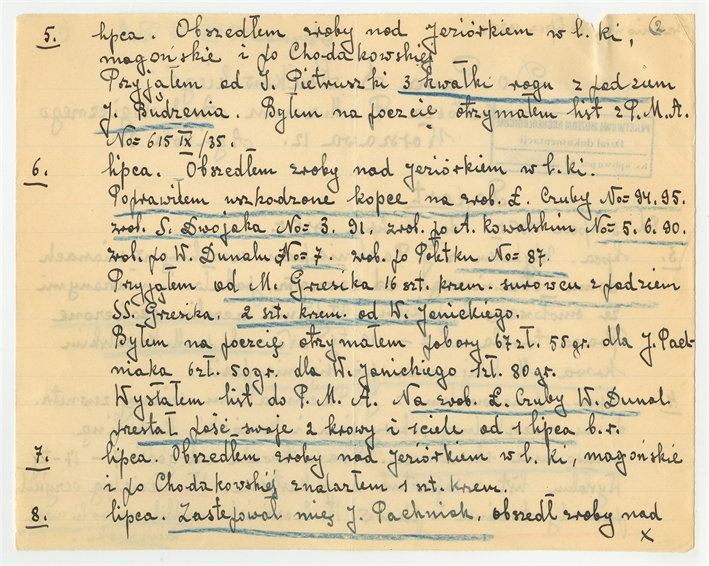 ②
5. lipca. Obszedłem zroby nad jeziórkiem w l. ki,
magońskie i po Chodakowskiej
Przyjąłem od S. Pietruszki 3 kwałki rogu z pod zum
J. Budzenia. Byłem na poczcie otrzymałem list z P. M. A.
No= 615 IX /35.
6. lipca. Obszedłem zroby nad jeziórkiem w l. ki.
Poprawiłem uszkodzone kopce na zrob. Ł. Czuby No= 94. 95.
zrob. S. Dwojaka No= 3. 91. zrob. po A. Kowalskim No= 5. 6. 90.
zrob. po W. Dunalu No= 7. zrob. po Połetku No= 87.
Przyjąłem od M. Grzesika 16 szt. krzem. surowcu z podziem
SS. Grzesika. 2 szt. krzem. od W. Janickiego.
Byłem na poczcię otrzymałem pobory 67 zł. 55 gr. dla J. Pach-
niaka 6 zł. 50 gr. dla W. Janickiego 1 zł. 80 gr.
Wysłałem list do P. M. A. Na zrob. Ł. Czuby W. Dunal
przestał paść swoje 2 krowy i 1 ciele od 1 lipca b. r.
7. lipca. Obszedłem zroby nad jeziórkiem w l. ki, magońskie
i po Chodakowskiej znalazłem 1 szt. krzem.
8. lipca. Zastępował mię J. Pachniak, obszedł zroby nad
x